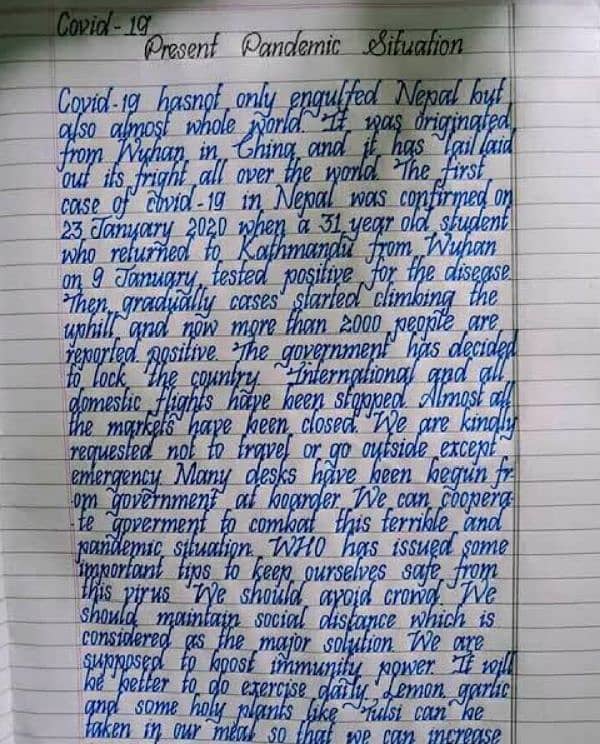 Covid-19
Present Pandemic Situation
Covid-19 hasnot only engulfed Nepal but
also almost whole world. It was originated
from Wuhan in China and it has laid
out its fright all over the world. The first
case of covid-19 in Nepal was confirmed on
23 January 2020 when a 31 year old student
who returned to Kathmandu from Wuhan
on 9 January, tested positive for the disease.
Then gradually cases started climbing the
uphill and now more than 2000 people are
reported positive. The government has decided
to lock the country. International and all
domestic flights have been stopped. Almost all
the markets have been closed. We are kindly
requested not to travel or go outside except
emergency. Many desks have been begun fr-
om government at boarder. We can coopera-
te goverment to combat this terrible and
pandemic situation. WHO has issued some
important tips to keep ourselves safe from
this virus. We should avoid crowd. We
should maintain social distance which is
considered as the major solution. We are
supposed to boost immunity power. It will
be better to do exercise daily. Lemon, garlic
and some holy plants like Tulsi can be
taken in our meal so that we can increase